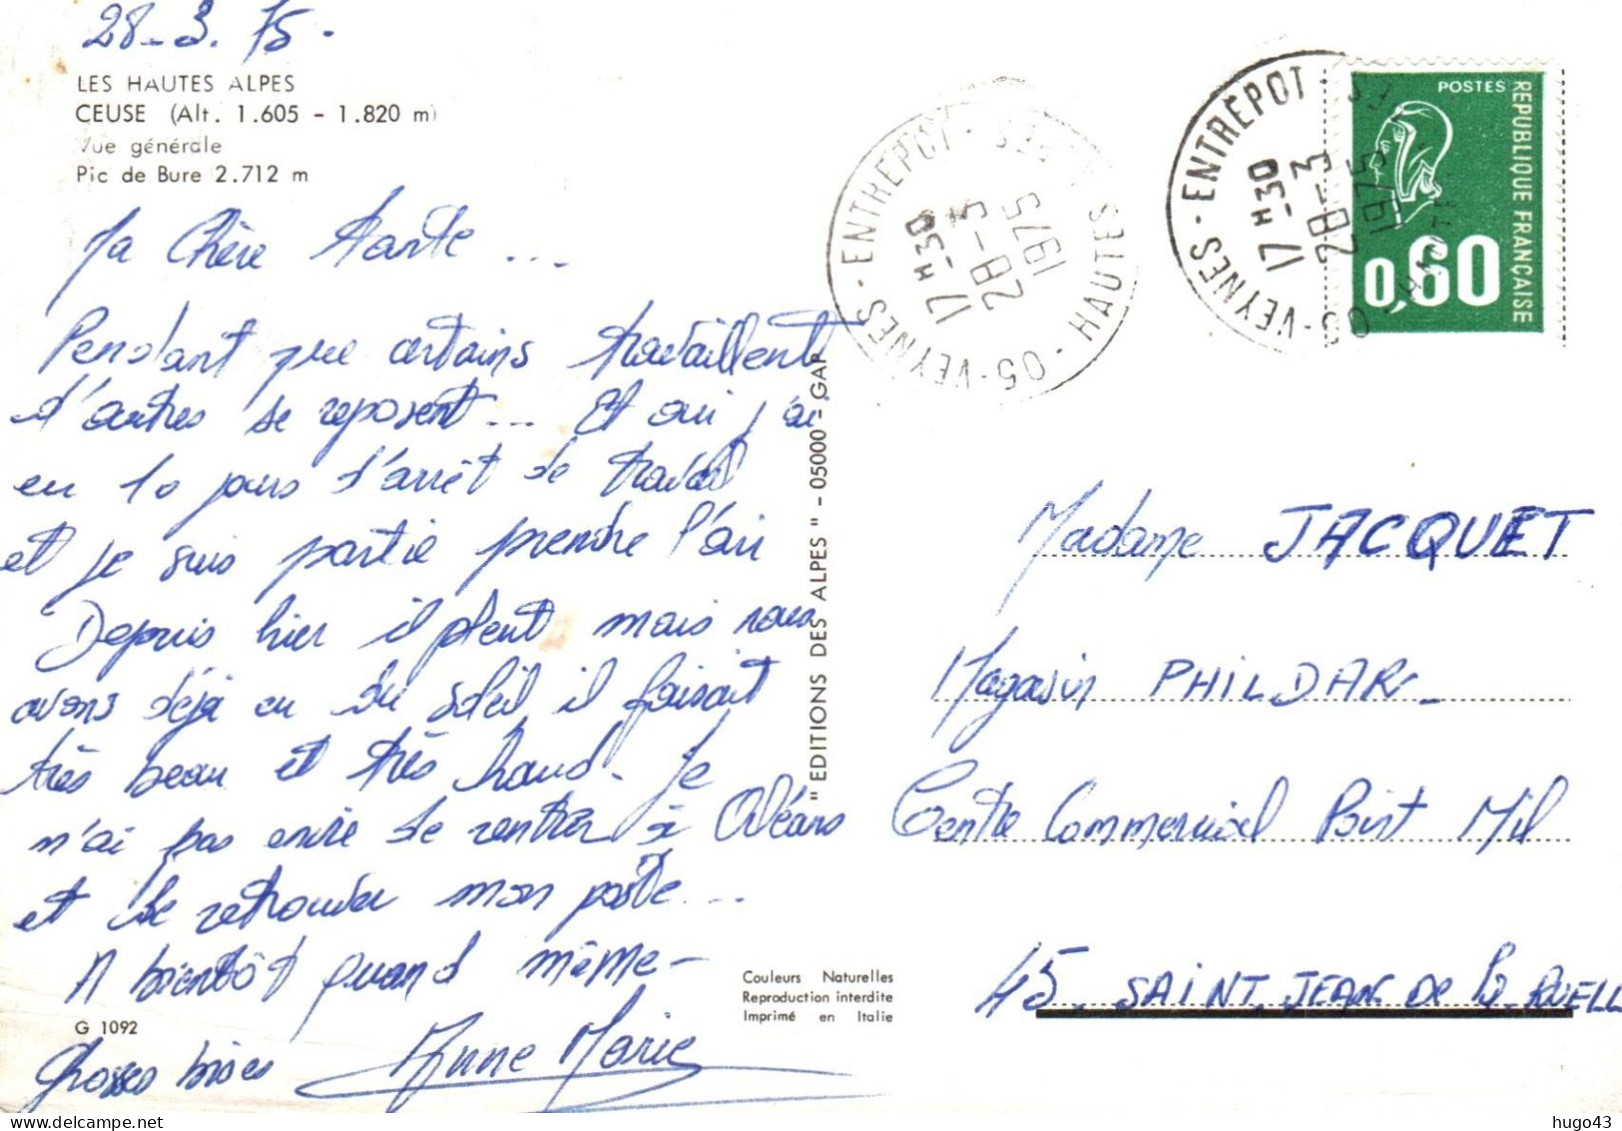 28-3.75.
LES HAUTES ALPES
CEUSE (Alt. 1.605 - 1.820 m)
Vue générale
Pic de Bure 2.712 m
Ma Chère tante...
Pendant que certains travaillent
d'autres se reposent... Et oui j'ai
eu 10 jours d'arrêt de travail
et je suis partie prendre l'air
Depuis hier il pleut, mais nous
avons déjà eu du soleil il faisait
très beau et très chaud. Je
n'ai pas envie de rentrer à Orléans
et de retrouver mon poste...
A bientôt quand même -
G 1092
Grosses bises Anne Marie
"EDITIONS DES ALPES" - 05000 - GAP
Couleurs Naturelles
Reproduction interdite
Imprimé en Italie
05 - VEYNES - ENTREPOT - HAUTES ALPES
17 H 30
28 - 3
1975
05 - VEYNES - ENTREPOT - HAUTES
17 H 30
28 - 3
1975
POSTES
REPUBLIQUE FRANÇAISE
0,60
Madame JACQUET
Magasin PHILDAR
Centre Commercial Point Mil
45. SAINT JEAN de la RUELL
hugo43